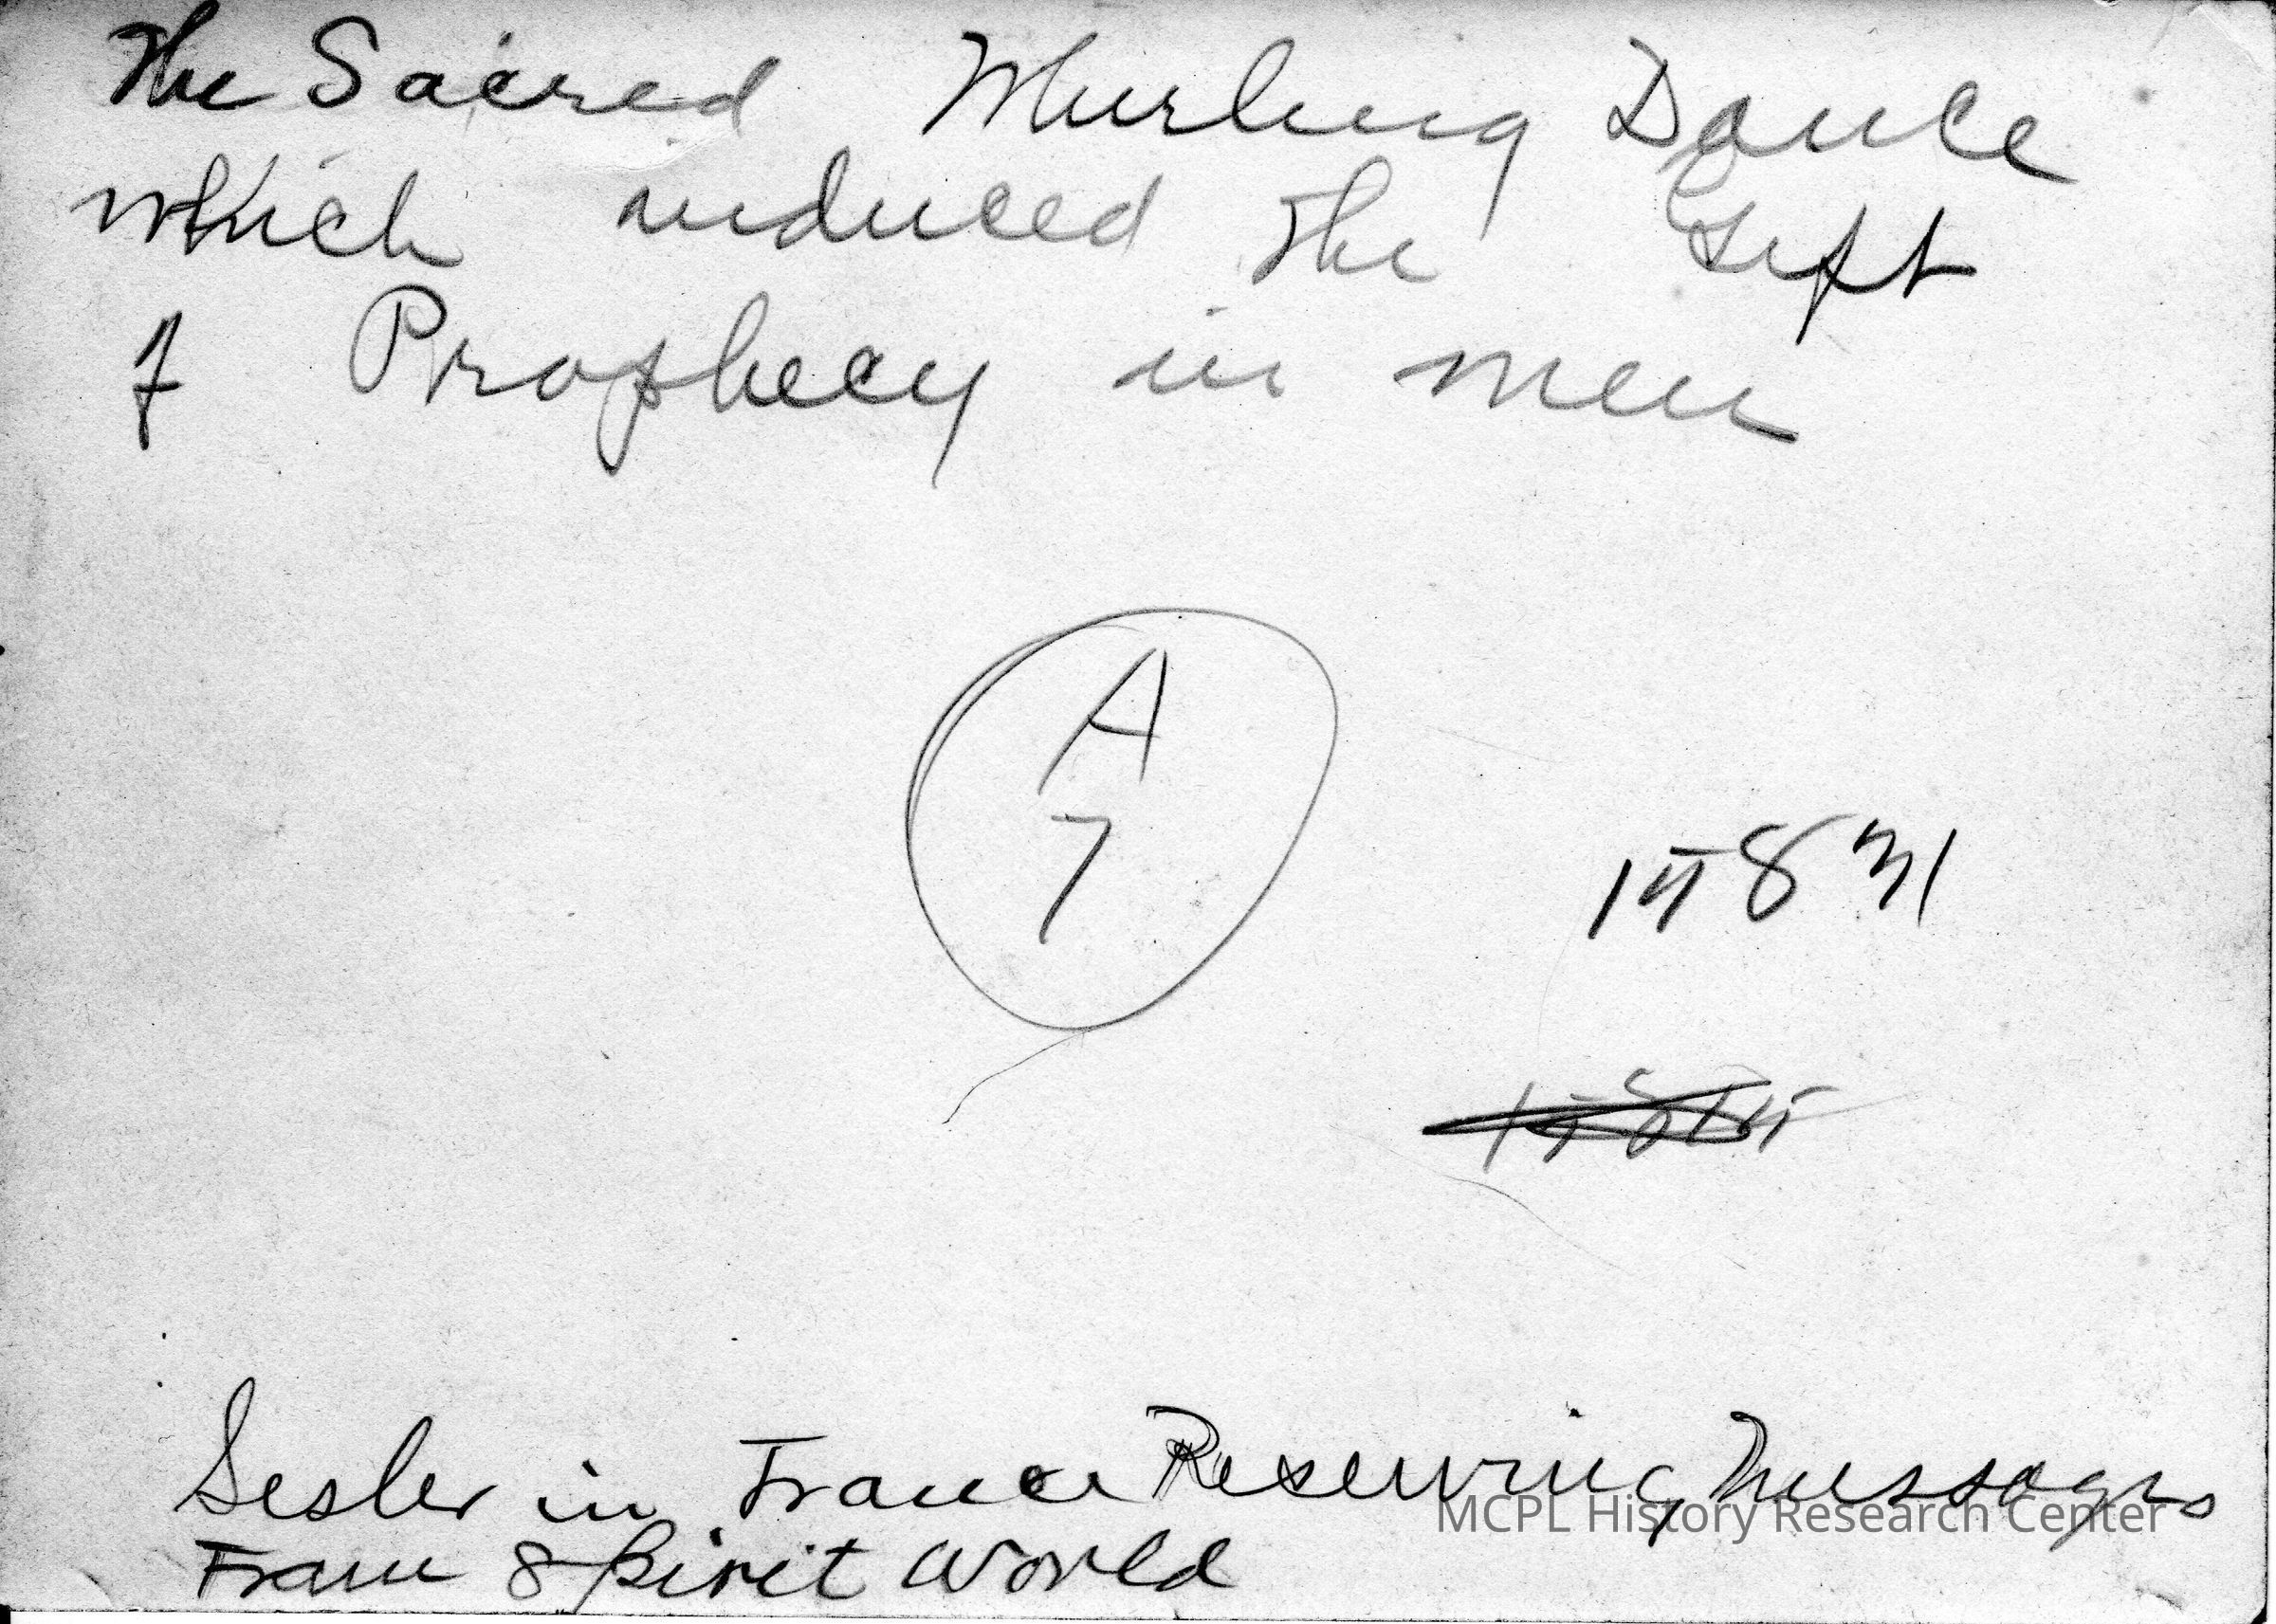 The Sacred Whirling Dance
which induced the Gift
of Prophecy in men
A
7
15831
Sesler in Trance Reserving Messages
From Spirit World
MCPL History Research Center